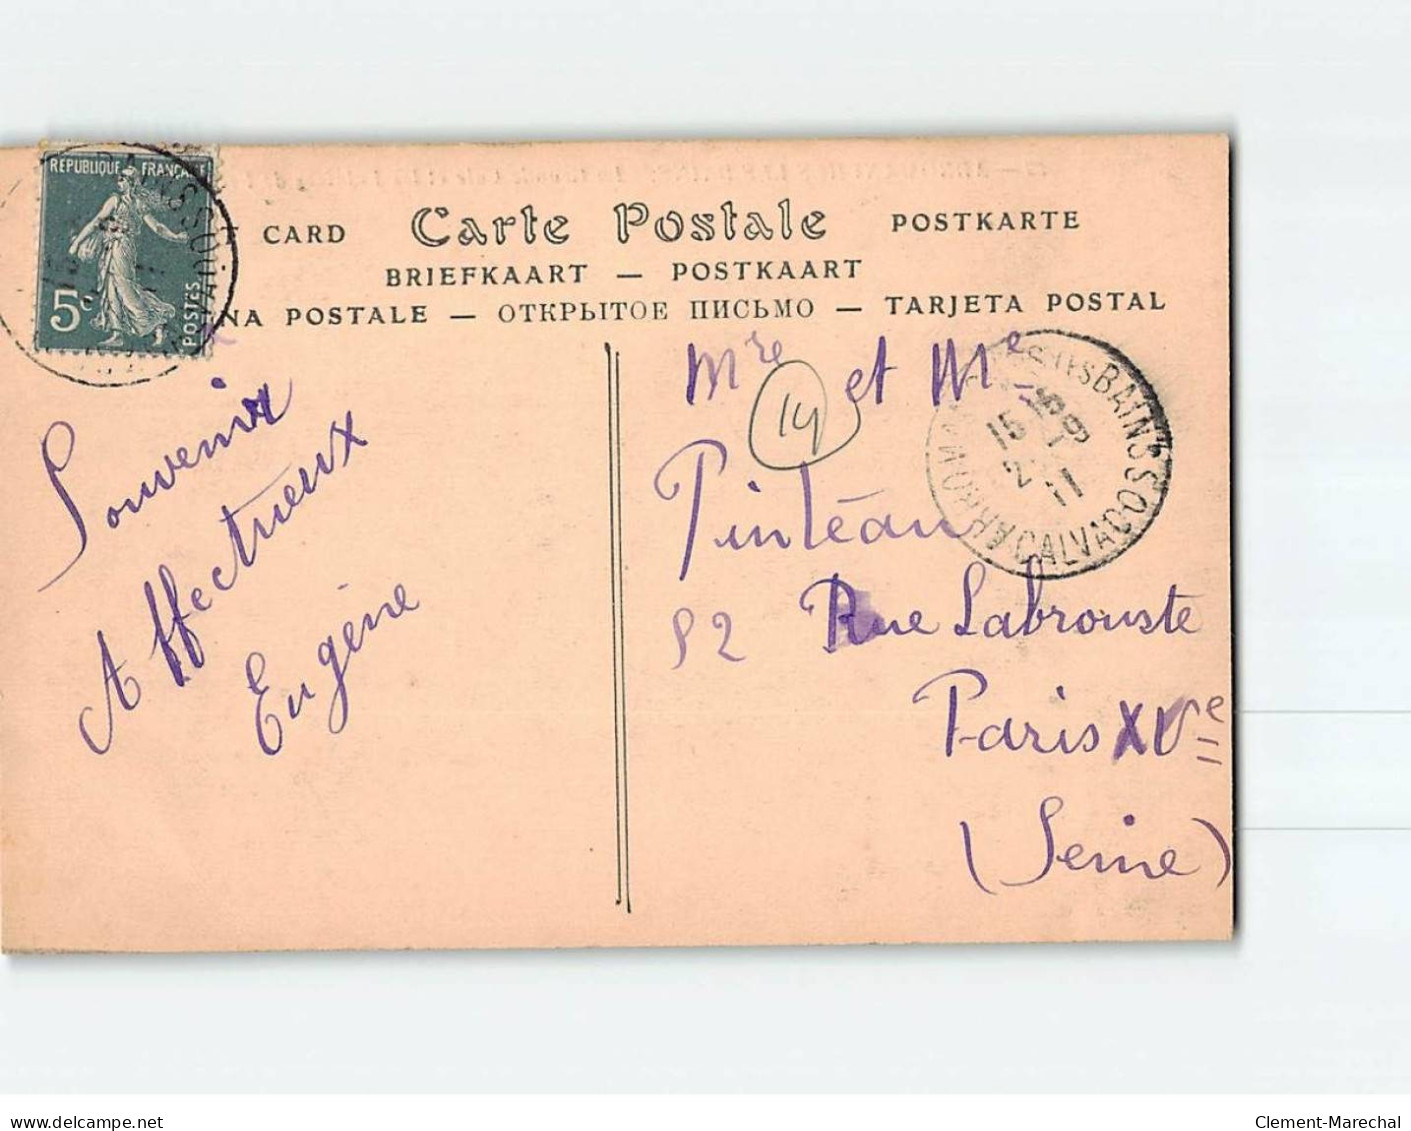 REPUBLIQUE FRANÇAISE
5c
POSTES
CARD Carte Postale POSTKARTE
BRIEFKAART — POSTKAART
NA POSTALE — ОТКРЫТОЕ ПИСЬМО — TARJETA POSTAL
Souvenir
Affectueux
Eugène
Mre et Me
14
Pintéau
52 Rue Labrouste
Paris XVe
(Seine)
ARROMANCHES LES BAINS CALVADOS
15
9
11
Clement-Marechal